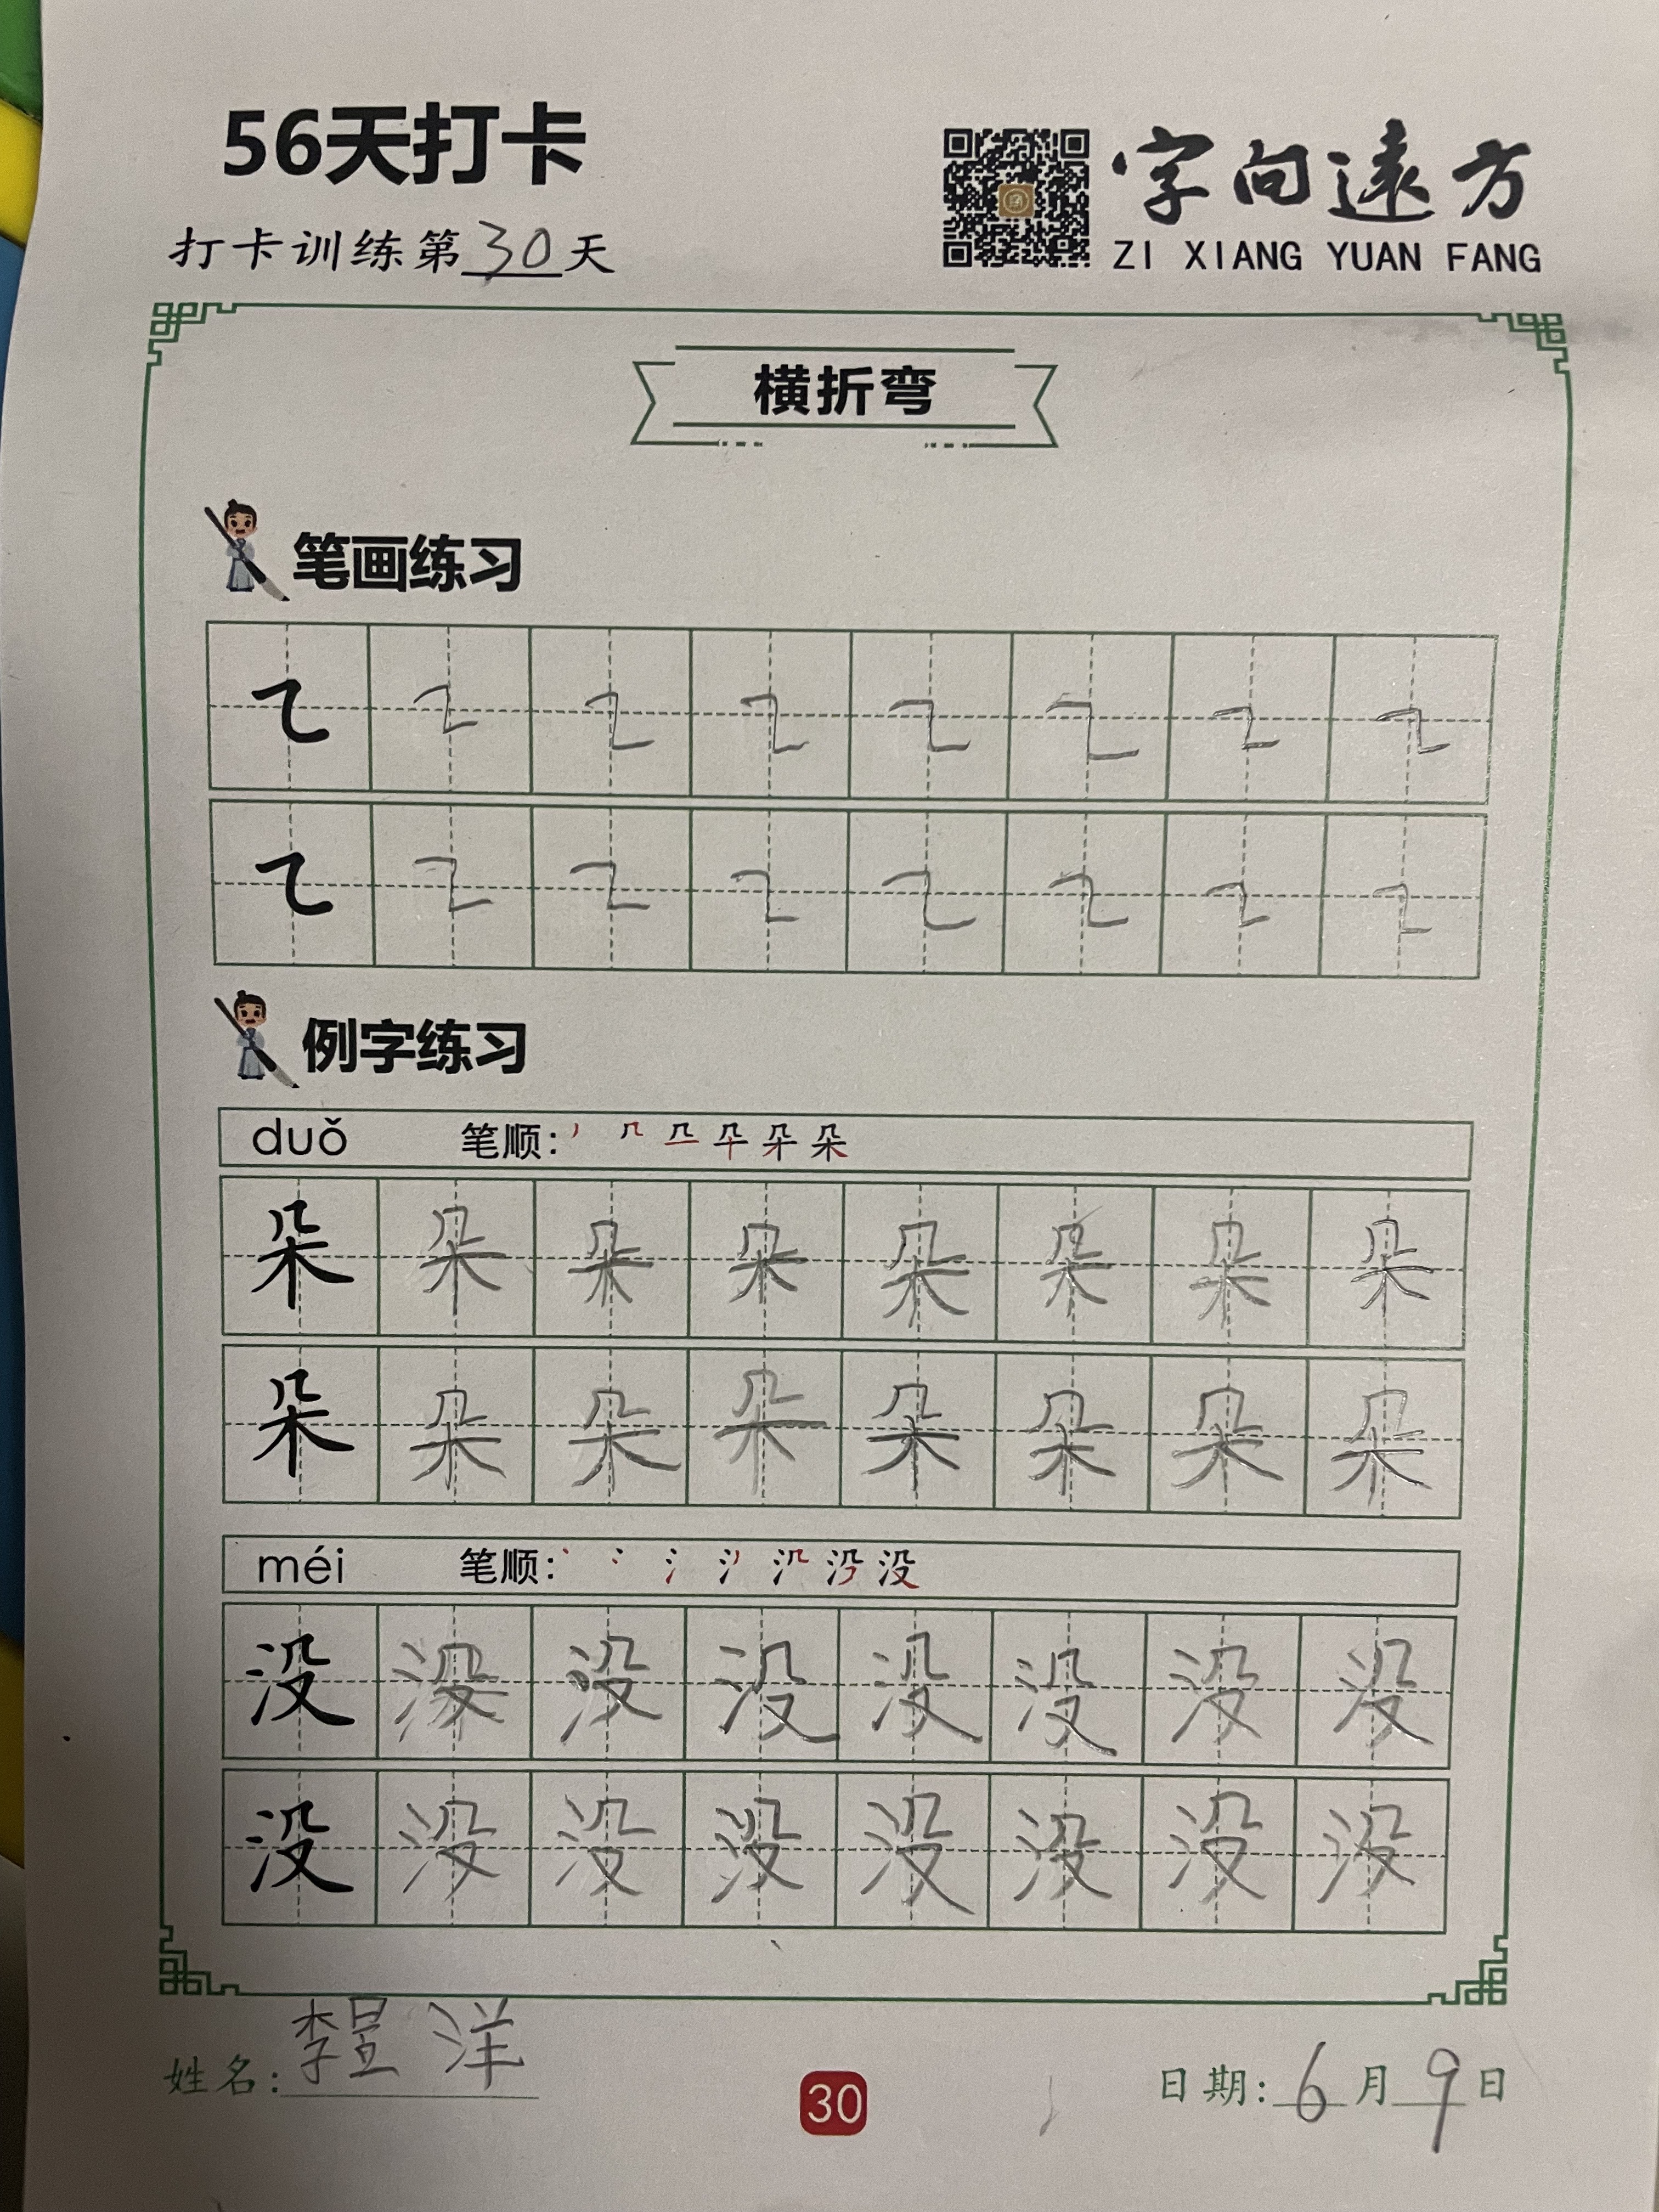 56天打卡
字向遠方
ZI XIANG YUAN FANG
打卡训练第30天
横折弯
笔画练习
例字练习
duǒ 笔顺:
朵 朵 朵 朵 朵 朵 朵 朵
朵 朵 朵 朵 朵 朵 朵 朵
méi 笔顺:
没 没 没 没 没 没 没 没
没 没 没 没 没 没 没 没
姓名: 李 洋
30
日期: 6月9日